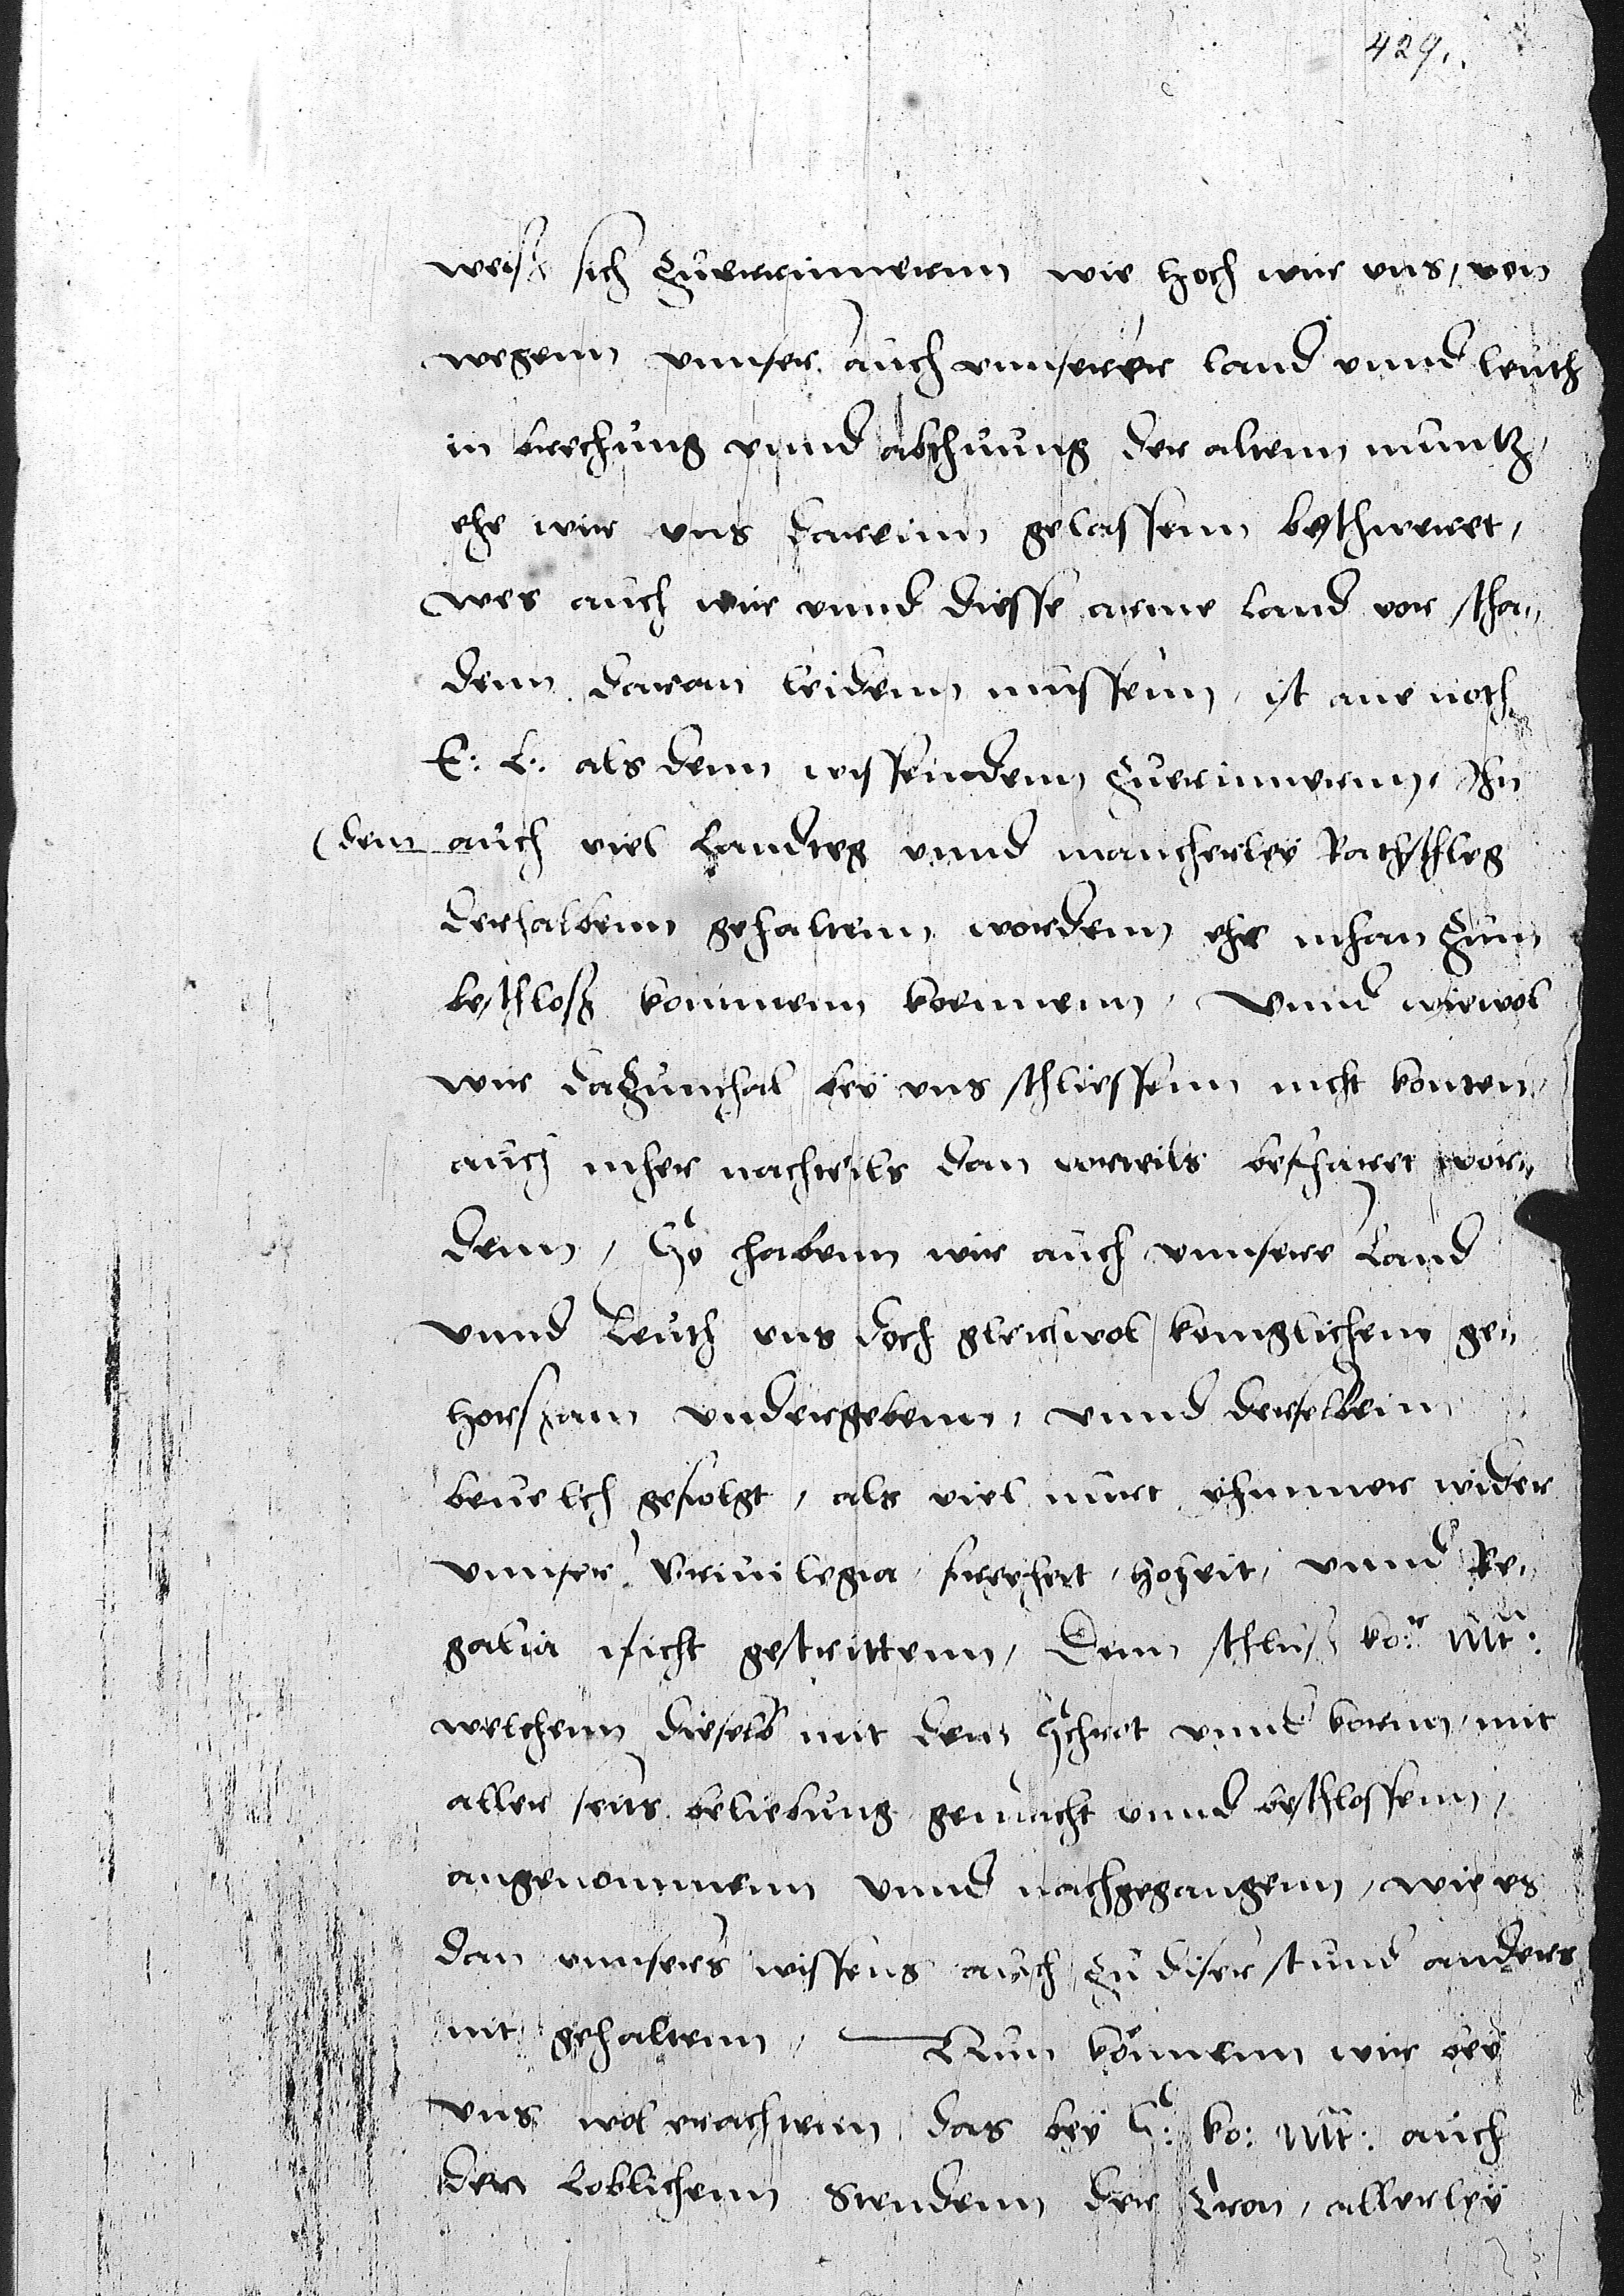 429.
weist sich zuerrinnernn wie hoch wir vns, von
wegenn vnnser auch vnnserer land vnnd leuth
in brechung vnnd abthuung der altenn muntz,
ehe wir vns dareinn gelassenn beschweret,
wes auch wir vnnd diesse arme land vor scha„
denn daran leidenn mussenn, ist ane noth
E: L: als denn wissendenn zuerinnernn, In
dem auch viel Landteg vnnd mancherley Rathschleg
derhalbenn gehaltenn wordenn ehe mhan zum
beschloß kommenn koennenn, Vnnd wiewol
wir dazumhal bey vns schliessenn nicht konten,
auch mher nachteils dan vorteils befharet wor„
denn, So habenn wir auch vnnsere Land
vnnd Leuth vns doch gleichwol koniglichem ge„
horsam vndergebenn, vnnd derselbenn
beuelch gefolgt, als viel nurt ihmmer wider
vnnser Priuilegia, freyheit, hoheit, vnnd Re„
galia nicht gestrittenn, Denn schluß ko:r Mt:
welchenn dieselb mit dem Schrot vnnd kornn, mit
aller seits beliebung gemacht vnnd beschlossenn,
angenommenn vnnd nachgegangenn, wie es
dan vnnsers wissens auch zu diser stund anders
nit gehaltenn, Nun können wir bey
vns wol erachtenn das bey S: ko: Mt: auch
den Loblichenn Stendenn der Cron, allerley